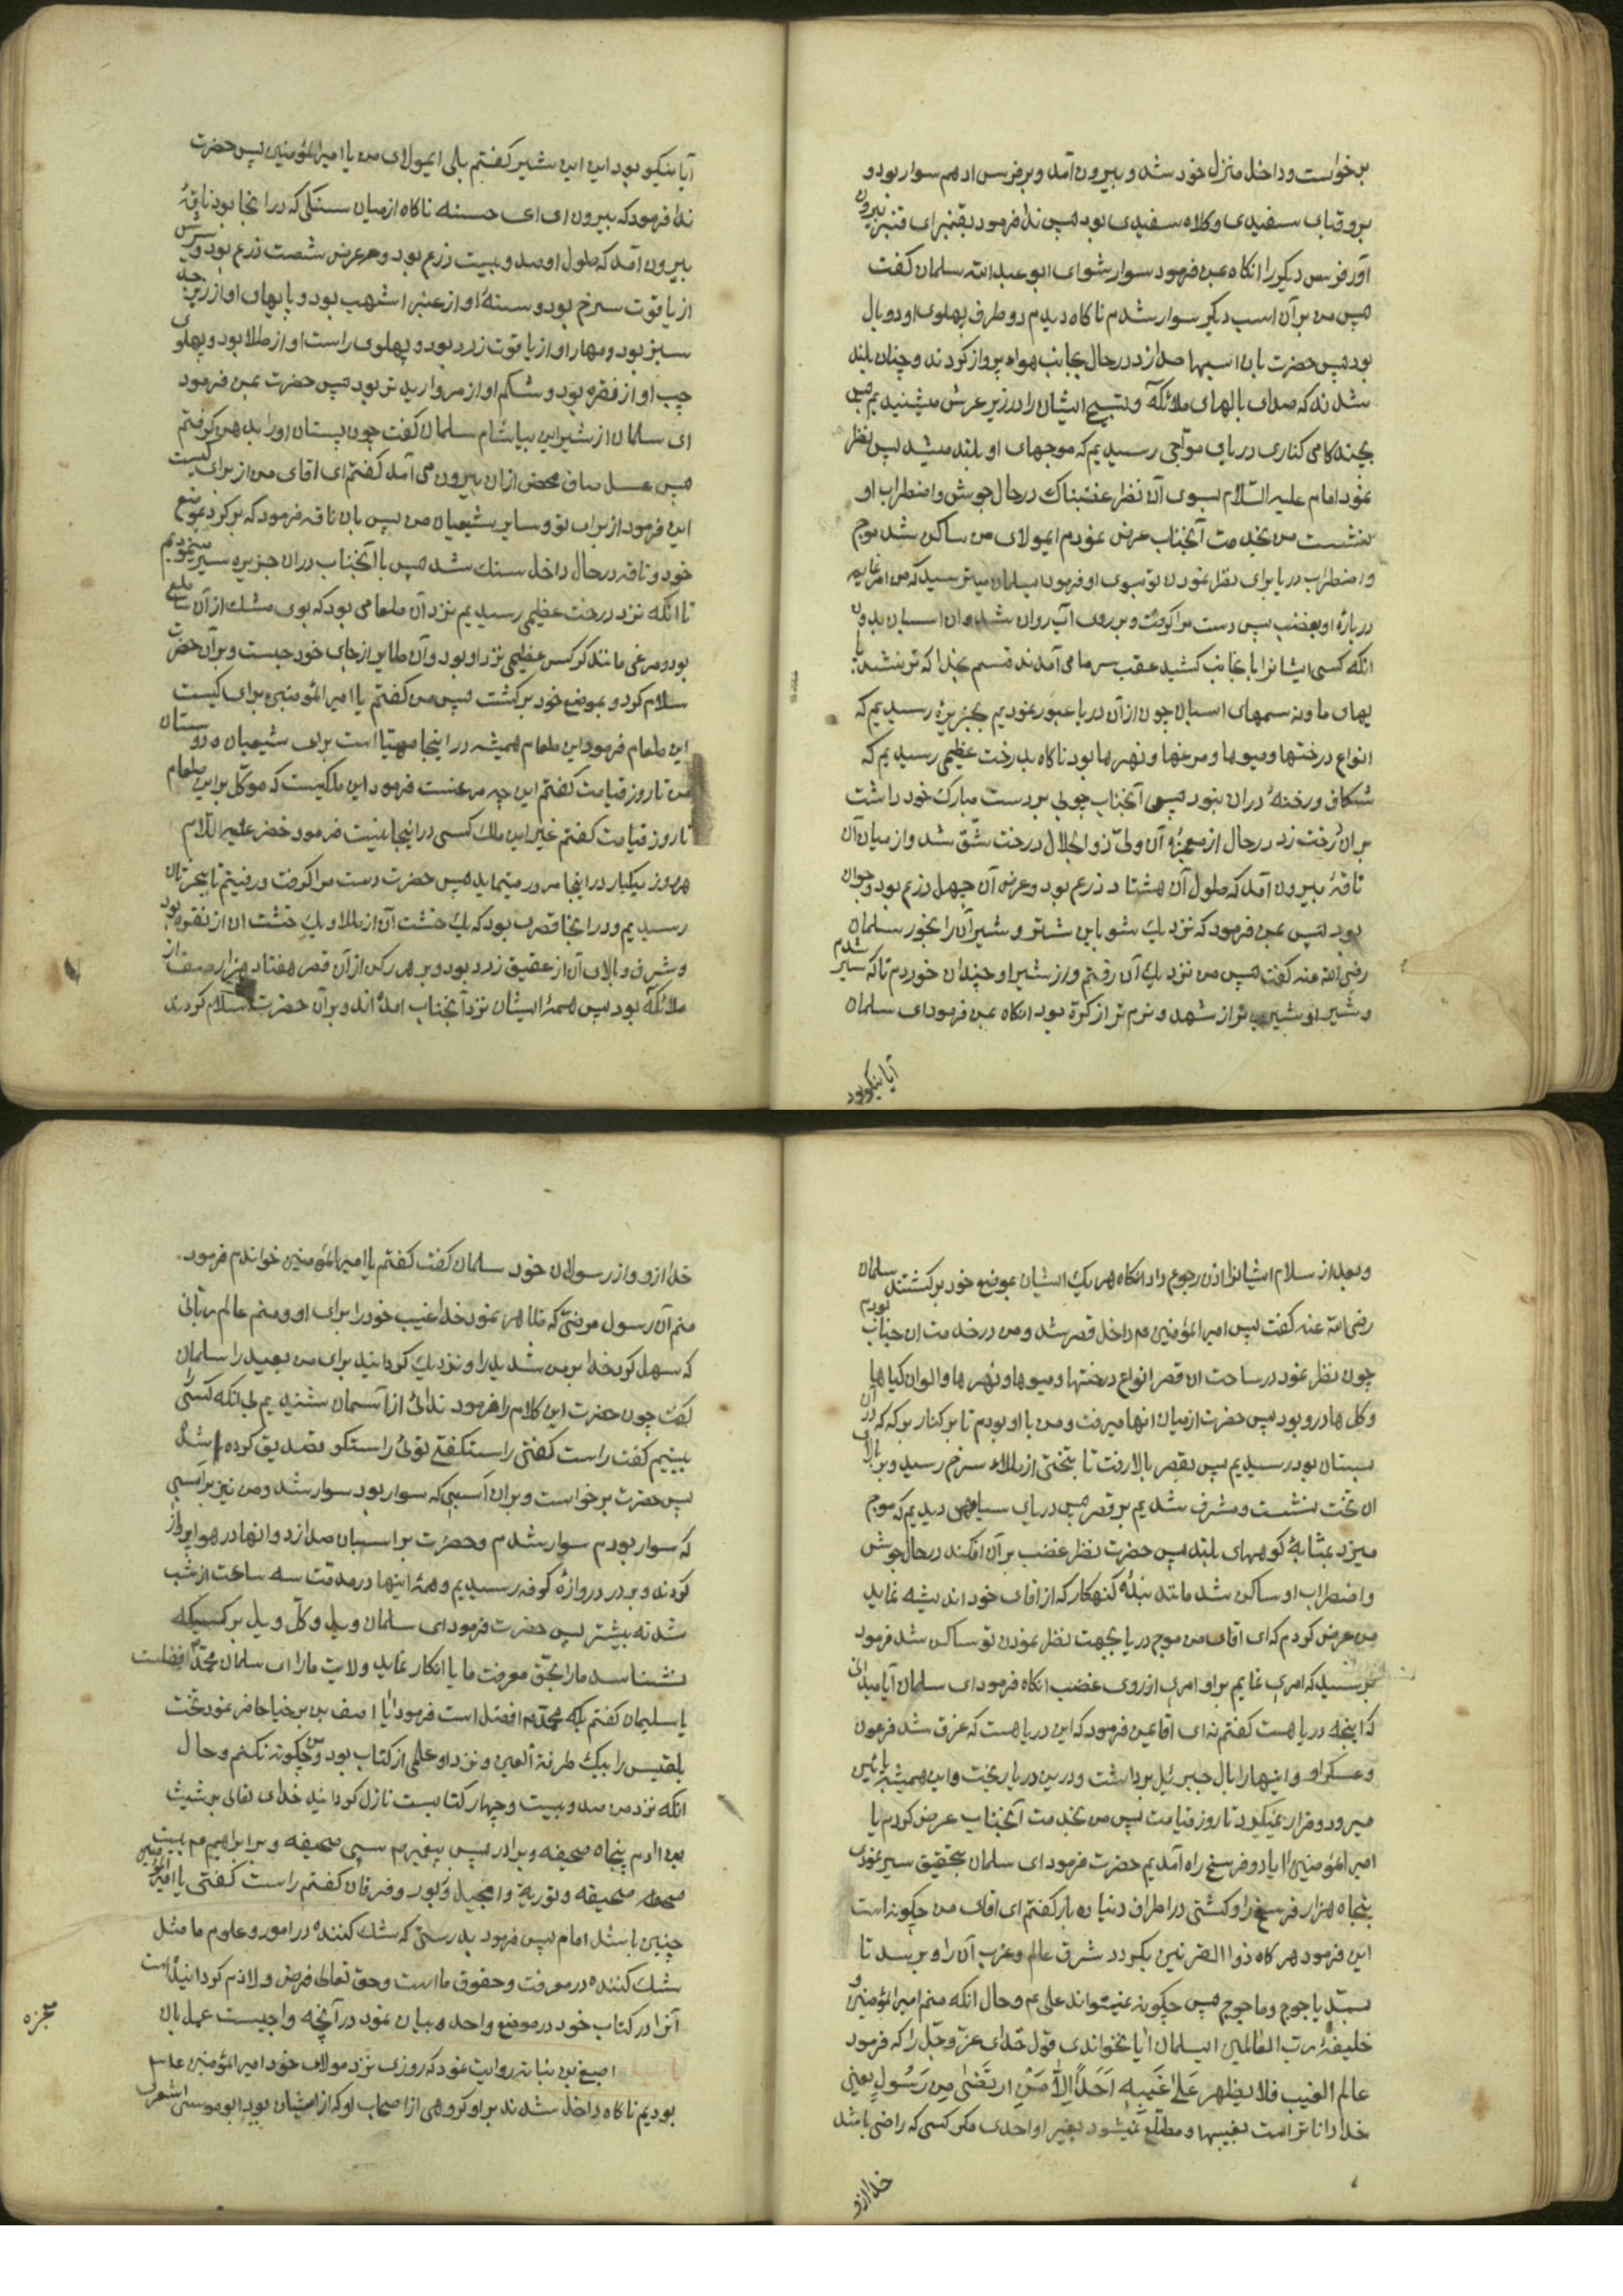 برخواست و داخل منزل خود شد و بیرون آمد و بر فرس ادهم سوار بود و
برو قبای سفیدی و کلاه سفیدی بود پس ندا فرمود بقنبر ای قنبر بیرون
آور فرس دیگر را انکاه بمن فرمود سوار شو ای ابو عبدالله سلمان کفت
پس من بر آن اسب دیکر سوار شدم ناکاه دیدم دو طرف پهلوی او دو بال
بود پس حضرت بان اسبها صدا زد در حال بجانب هوا پرواز کردند و چنان بلند
شدند که صدای بالهای ملائکه و تسبیح ایشان را در زیر عرش میشنیدیم پس
بچند کامی کناری دریای مواجی رسیدیم که موجهای او بلند میشد پس نظر
نمود امام علیه السّلام بسوی آن نظر غضبناک در حال جوش و اضطراب او
بنشست من بخدمت آنجناب عرض نمودم ایمولای من ساکن شد موج
و اضطراب دریا برای نظر نمودن تو بسوی او فرمود ایسلمان میترسید که من امر نمایم
درباره او بغضب پس دست مرا کرفت و بر روی آب روان شد و ان اسبان بدون
انکه کسی ایشانرا بانجانب کشید عقب سر ما می آمدند قسم بخدا که تر نشد پا
یهای ما و نه سمهای اسبان چون از آن دریا عبور نمودیم بجزیرهٔ رسیدیم که
انواع درختها و میوها و مرغها و نهرها بود ناکاه بدرخت عظیمی رسیدیم که
شکاف و رخنهٔ دران نبود پس آنجناب چوبی بر دست مبارک خود داشت
بران درخت زد در حال از معجزه آن ولیّ ذو الجلال درخت شّق شد و از میان آن
ناقهٔ بیرون آمد که طول آن هشتاد ذرع بود و عرض آن چهل ذرع بود و جوان
بود پس بمن فرمود که نزدیک شو باین شتر و شیر آن را بخور سلمان
رضی الله عنه کفت پس من نزدیک آن رفتم و از شیر او چندان خوردم تا که سیر شدم
و شیر او شیرین تر از شهد و نرم تر از کرة بود انکاه بمن فرمود ای سلمان
آیا نیکو بود
آیا نیکو بود این شیر کفتم بلی ایمولای من یا امیر المؤمنین پس حضرت
ندا فرمود که بیرون ای ای حسنه ناکاه از میان سنکی که در انجا بود ناقهٔ
بیرون آمد که طول او صد و بیست ذرع بود و عرض شصت ذرع بود و سرش
از یاقوت سرخ بود و سینهٔ او از عنبر اشهب بود و پایهای او از زبرجد
سبز بود و مهار او از یاقوت زرد بود و پهلوی راست او از طلا بود و پهلوی
چپ او از فقره بود و شکم او از مروارید تر بود پس حضرت بمن فرمود
ای سلمان از شیر این بیاشام سلمان کفت چون پستان اورا بدهن کرفتم
پس عسل صاف محض ازان بیرون می آمد کفتم ای اقای من از برای کیست
این فرمود از برای تو و سایر شیعیان من پس بان ناقه فرمود که برکرد بموضع
خود و ناقه در حال داخل سنک شد پس با آنجناب دران جزیره سیر مینمودیم
تا انکه نزد درخت عظیمی رسیدیم نزد آن طعامی بود که بوی مشک از آن ساطع
بود و مرغی مانند کرکس عظیمی نزد او بود و آن طایر از جای خود جست و بر آن حضرت
سلام کرد و بموضع خود برکشت پس من کفتم یا امیر المؤمنین برای کیست
این طعام فرمود این طعام همیشه در اینجا مهیّا است برای شیعیان و دوستان
من تا روز قیامت کفتم این چه مرغست فرمود این ملکیست که موکّل بر این طعام
تا روز قیامت کفتم غیر این ملک کسی در اینجا نیست فرمود خضر علیه السّلام
هر روز یکبار در اینجا مرور مینماید پس حضرت دست مرا کرفت و رفتیم تا ببحر ثانی
رسیدیم و در انجا قصری بود که یک خشت آن از طلا و یک خشت ان از نقره بود
و شرف و بالای آن از عقیق زرد بود و بر هر رکن از آن قصر هفتاد هزار صف از
ملائکه بود پس همهٔ ایشان نزد آنجناب امده اند و بر آن حضرت سلام کردند
و بعد از سلام ایشانرا اذن رجوع داد انکاه هر یک ایشان بموضع خود برکشتند سلمان
رضی الله عنه کفت پس امیر المؤمنین ع داخل قصر شد و من در خدمت ان جناب بودم
چون نظر نمود در ساحت ان قصر انواع درختها و میوها و نهرها و الوان کیاها
و کل ها درو بود پس حضرت از میان انها میرفت و من با او بودم تا بر کنار برکه که در آن
بستان بود رسیدیم پس بقصر بالا رفت تا بتختی از طلاء سرخ رسید و بر بالای
ان تخت بنشست و مشرف شدیم بر قصر پس دریای سیاهی دیدیم که موج
میزد بمثابهٔ کوههای بلند پس حضرت نظر غضب بر آن افکند در حال جوش
و اضطراب او ساکن شد مانند بندهٔ کنهکار که از اقای خود اندیشه نماید
من عرض کردم که ای اقای من موج دریا بجهت نظر نمودن تو ساکن شد فرمود
ترسید که امری نمایم بر او امری از روی غضب انکاه فرمود ای سلمان آیا میدانی
که اینچه دریا هست کفتم نه ای اقا بمن فرمود که این دریا هست که غرق شد فرعون
و عسکر او و اینها را ببال جبرئیل برداشت و درین دریا ریخت و این همیشه پائین
میرود و قرار نمیکیرد تا روز قیامت پس من بخدمت آنجناب عرض کردم یا
امیر المؤمنین ایا دو فرسخ راه آمدیم حضرت فرمود ای سلمان بتحقیق سیر نمودی
پنجاه هزار فرسخ را و کشتی در اطراف دنیا ده بار کفتم ای اقای من چکونه است
این فرمود هر کاه ذو القرنین بکردد شرق عالم و غرب آن را و برسد تا
بسدّ یاجوج و ماجوج پس چکونه نمیتواند علی ع و حال انکه منم امیر المؤمنین و
خلیفهٔ رب العالمین ایسلمان ایا نخواندی قول خدای عزّ و جلّ را که فرمود
عالم الغیب فلا یظهر عَلیٰ غَیبِهِ اَحَدًا اِلّا مَنِ ارتَضیٰ مِن رَسُولٍ یعنی
خدا دانا تر است بغیبها و مطلّع نمیشود بغیر او احدی مکر کسی که راضی باشد
خدا ازو و
خدا ازو و از رسولان خود سلمان کفت کفتم یا امیر المؤمنین خواندم فرمود
منم آن رسول مرضیّ که ظاهر نمود خدا غیب خود را برای او و منم عالم ربّانی
که سهل کرد خدا بر من شدید را و نزدیک کردانید برای من بعید را سلمان
کفت چون حضرت این کلام را فرمود ندائی از آسمان شنیدیم بی انکه کسی
ببینیم کفت راست کفتی راست کفتی توئی راستکو تصدیق کرده شد
پس حضرت برخواست و بران اسبی که سوار بود سوار شد و من نیز بر اسبی
که سوار بودم سوار شدم و حضرت بر اسبان صدا زد و انها در هوا پرواز
کردند و بر در دروازهٔ کوفه رسیدیم و همهٔ اینها در مدّت سه ساعت از شب
شد نه بیشتر پس حضرت فرمود ای سلمان ویل و کلّ ویل بر کسیکه
نشناسد ما را بحّق معرفت ما یا انکار نماید ولایت ما را ای سلمان محمّد افضلست
یا سلیمان کفتم بلکه محمّد افضل است فرمود ایا اصف بن برخیا حاضر نمود تخت
بلقیس را بیک طرفة العین و نزد او علمی از کتاب بود و من چکونه نکنم و حال
انکه نزد من صد و بیست و چهار کتابست نازل کردانید خدای تعالی بر شیث
بن ادم پنجاه صحیفه و بر ادریس پیغمبر سی صحیفه و بر ابراهیم ع بیست
صحیفه و توریة و انجیل و زبور و فرقان کفتم راست کفتی یا امیر المؤمنین
چنین باشد امام پس فرمود بدرستی که شک کننده در امور و علوم ما مثل
شک کننده در معرفت و حقوق ما است و حق تعالی فرض و لازم کردانیده است
آنرا در کتاب خود در موضع واحد و بیان نمود در آنچه واجبست عمل بان
معجزه
اصبغ بن نباته روایت نمود که روزی نزد مولای خود امیر المؤمنین علیه السلام
بودیم ناکاه داخل شدند بر او کروهی از اصحاب او که از ایشان بود ابو موسی اشعری